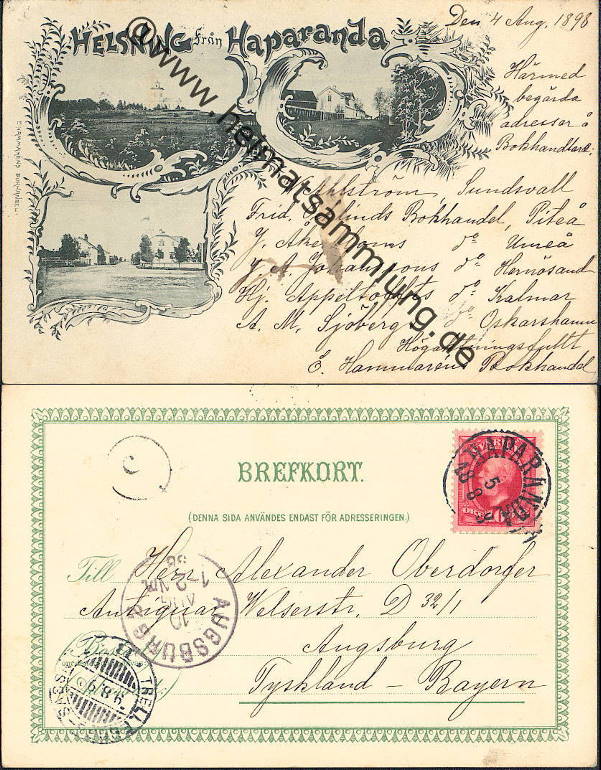 Den 4 Aug. 1898
HELSNING från Haparanda
Härmed
begärda
adresser å
Bokhandlare:
Sundsvall
Bokhandel, Piteå
do Umeå
J. A. Johanssons do Hernösand
Hj. Appeltoffts do Kalmar
A. M. Sjöberg do Oskarshamn
Högaktningsfullt
E. Hammaréns Bokhandel
@www.heimatsammlung.de
BREFKORT.
(DENNA SIDA ANVÄNDES ENDAST FÖR ADRESSERINGEN.)
HAPARANDA
5
8
98
Till Herr Alexander Oberdorfer
Antiquar Welserstr. D 32/1
Augsburg
Tyskland - Bayern
AUGSBURG
10